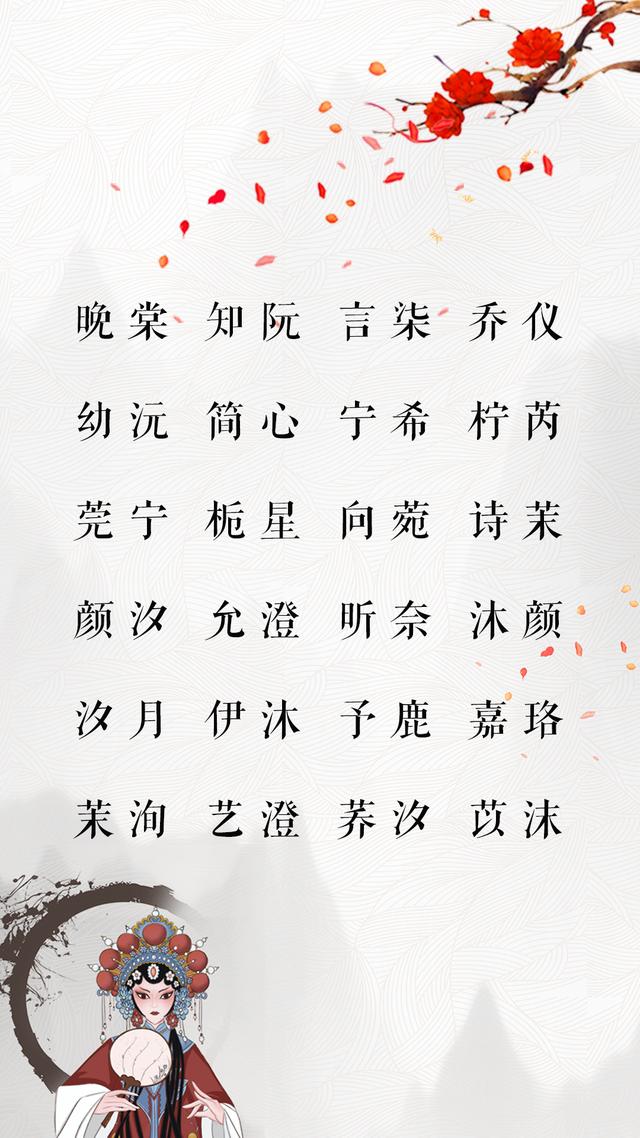 晚棠 知阮 言柒 乔仪
幼沅 简心 宁希 柠芮
莞宁 栀星 向菀 诗茉
颜汐 允澄 昕奈 沐颜
汐月 伊沐 予鹿 嘉珞
茉洵 艺澄 荞汐 苡沫